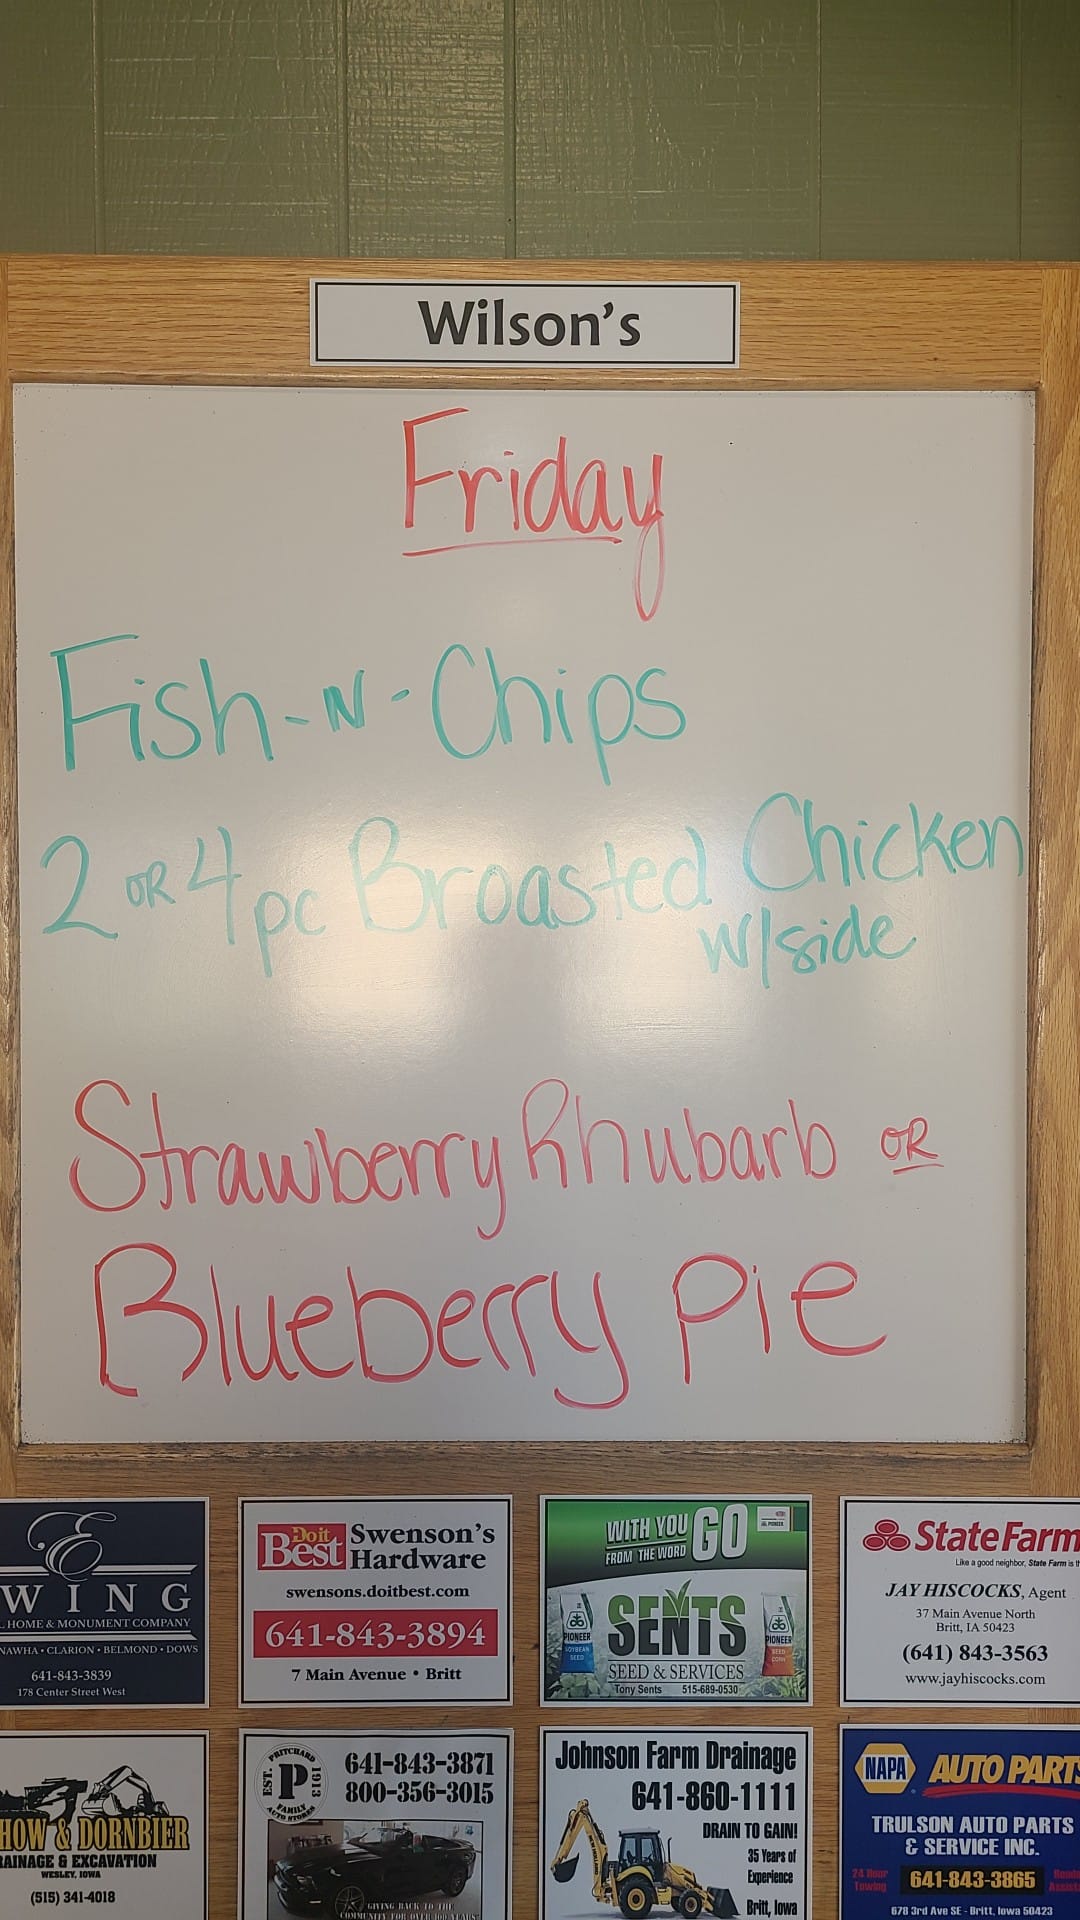 Wilson's
Friday
Fish-N-Chips
2 OR 4 pc Broasted Chicken
w/side
Strawberry Rhubarb OR
Blueberry Pie
E
WING
L HOME & MONUMENT COMPANY
NAWHA • CLARION • BELMOND • DOWS
641-843-3839
178 Center Street West
Do it Best
Swenson's
Hardware
swensons.doitbest.com
641-843-3894
7 Main Avenue • Britt
WITH YOU
FROM THE WORD
GO
PIONEER
SOYBEAN
SEED
SENTS
SEED & SERVICES
PIONEER
SEED
CORN
Tony Sents 515-689-0530
State Farm
Like a good neighbor, State Farm is th
JAY HISCOCKS, Agent
37 Main Avenue North
Britt, IA 50423
(641) 843-3563
www.jayhiscocks.com
HOW & DORNBIER
RAINAGE & EXCAVATION
WESLEY, IOWA
(515) 341-4018
PRITCHARD
EST. P 1913
FAMILY
AUTO STORES
641-843-3871
800-356-3015
GIVING BACK TO THE
COMMUNITY FOR OVER 100 YEARS
Johnson Farm Drainage
641-860-1111
DRAIN TO GAIN!
35 Years of
Experience
Britt, Iowa
NAPA
AUTO PARTS
TRULSON AUTO PARTS
& SERVICE INC.
24 Hour
Towing
641-843-3865
678 3rd Ave SE - Britt, Iowa 50423